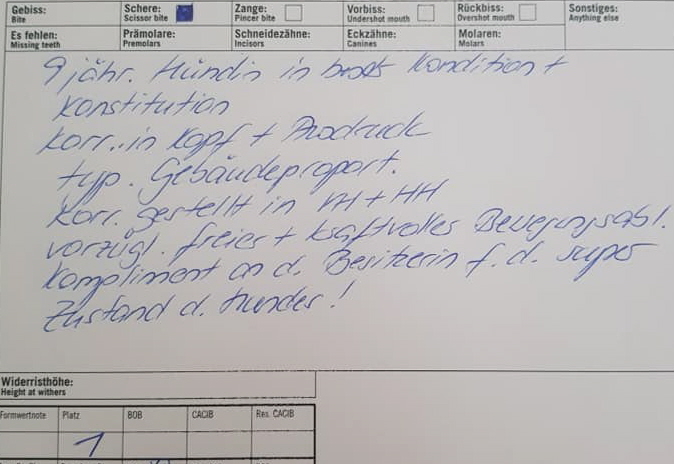 Gebiss: Schere: Zange: Vorbiss: Rückbiss: Sonstiges:
Bite Scissor bite Pincer bite Undershot mouth Overshot mouth Anything else
Es fehlen: Prämolare: Schneidezähne: Eckzähne: Molaren:
Missing teeth Premolars Incisors Canines Molars
9 jähr. Hündin in Kondition +
Konstitution
korr. in Kopf + Ausdruck
typ. Gebäudeproport.
korr. gestellt in VH + HH
vorzügl. freies + kraftvolles Bewegungsabl.
Kompliment an d. Besitzerin f. d. super
Zustand d. Hundes!
Widerristhöhe:
Height at withers
Formwertnote Platz BOB CACIB Res. CACIB
1